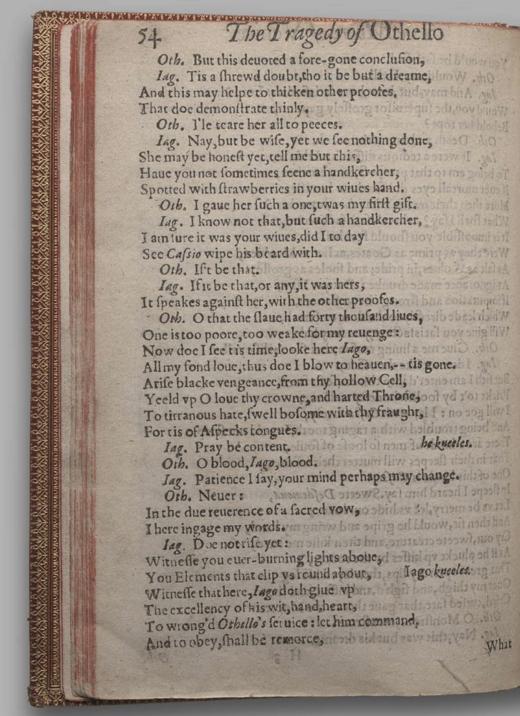 54 The Tragedy of Othello
Oth. But this deuoted a fore-gone conclusion,
Iag. Tis a shrewd doubt,tho it be but a dreame,
And this may helpe to thicken other proofes,
That doe demonstrate thinly.
Oth. I'le teare her all to peeces.
Iag. Nay,but be wise,yet we see nothing done,
She may be honest yet,tell me but this,
Haue you not sometimes seene a handkercher,
Spotted with strawberries in your wiues hand.
Oth. I gaue her such a one,twas my first gift.
Iag. I know not that,but such a handkercher,
I am sure it was your wiues,did I to day
See Cassio wipe his beard with.
Oth. Ift be that.
Iag. If it be that,or any,it was hers,
It speakes against her,with the other proofes.
Oth. O that the slaue had forty thousand liues,
One is too poore,too weake for my reuenge:
Now doe I see tis time,looke here Iago,
All my fond loue,thus doe I blow to heauen,-- tis gone.
Arise blacke vengeance,from thy hollow Cell,
Yeeld vp O loue thy crowne,and harted Throne,
To tirranous hate,swell bosome with thy fraught,
For tis of Aspecks tongues.
Iag. Pray be content. he kneeles.
Oth. O blood,Iago,blood.
Iag. Patience I say,your mind perhaps may change.
Oth. Neuer:
In the due reuerence of a sacred vow,
I here ingage my words.
Iag. Doe not rise yet:
Witnesse you euer-burning lights aboue,
You Elements that clip vs round about, Iago kneeles.
Witnesse that here,Iago doth giue vp
The excellency of his wit,hand,heart,
To wrong'd Othello's seruice: let him command,
And to obey,shall be remorce,
What